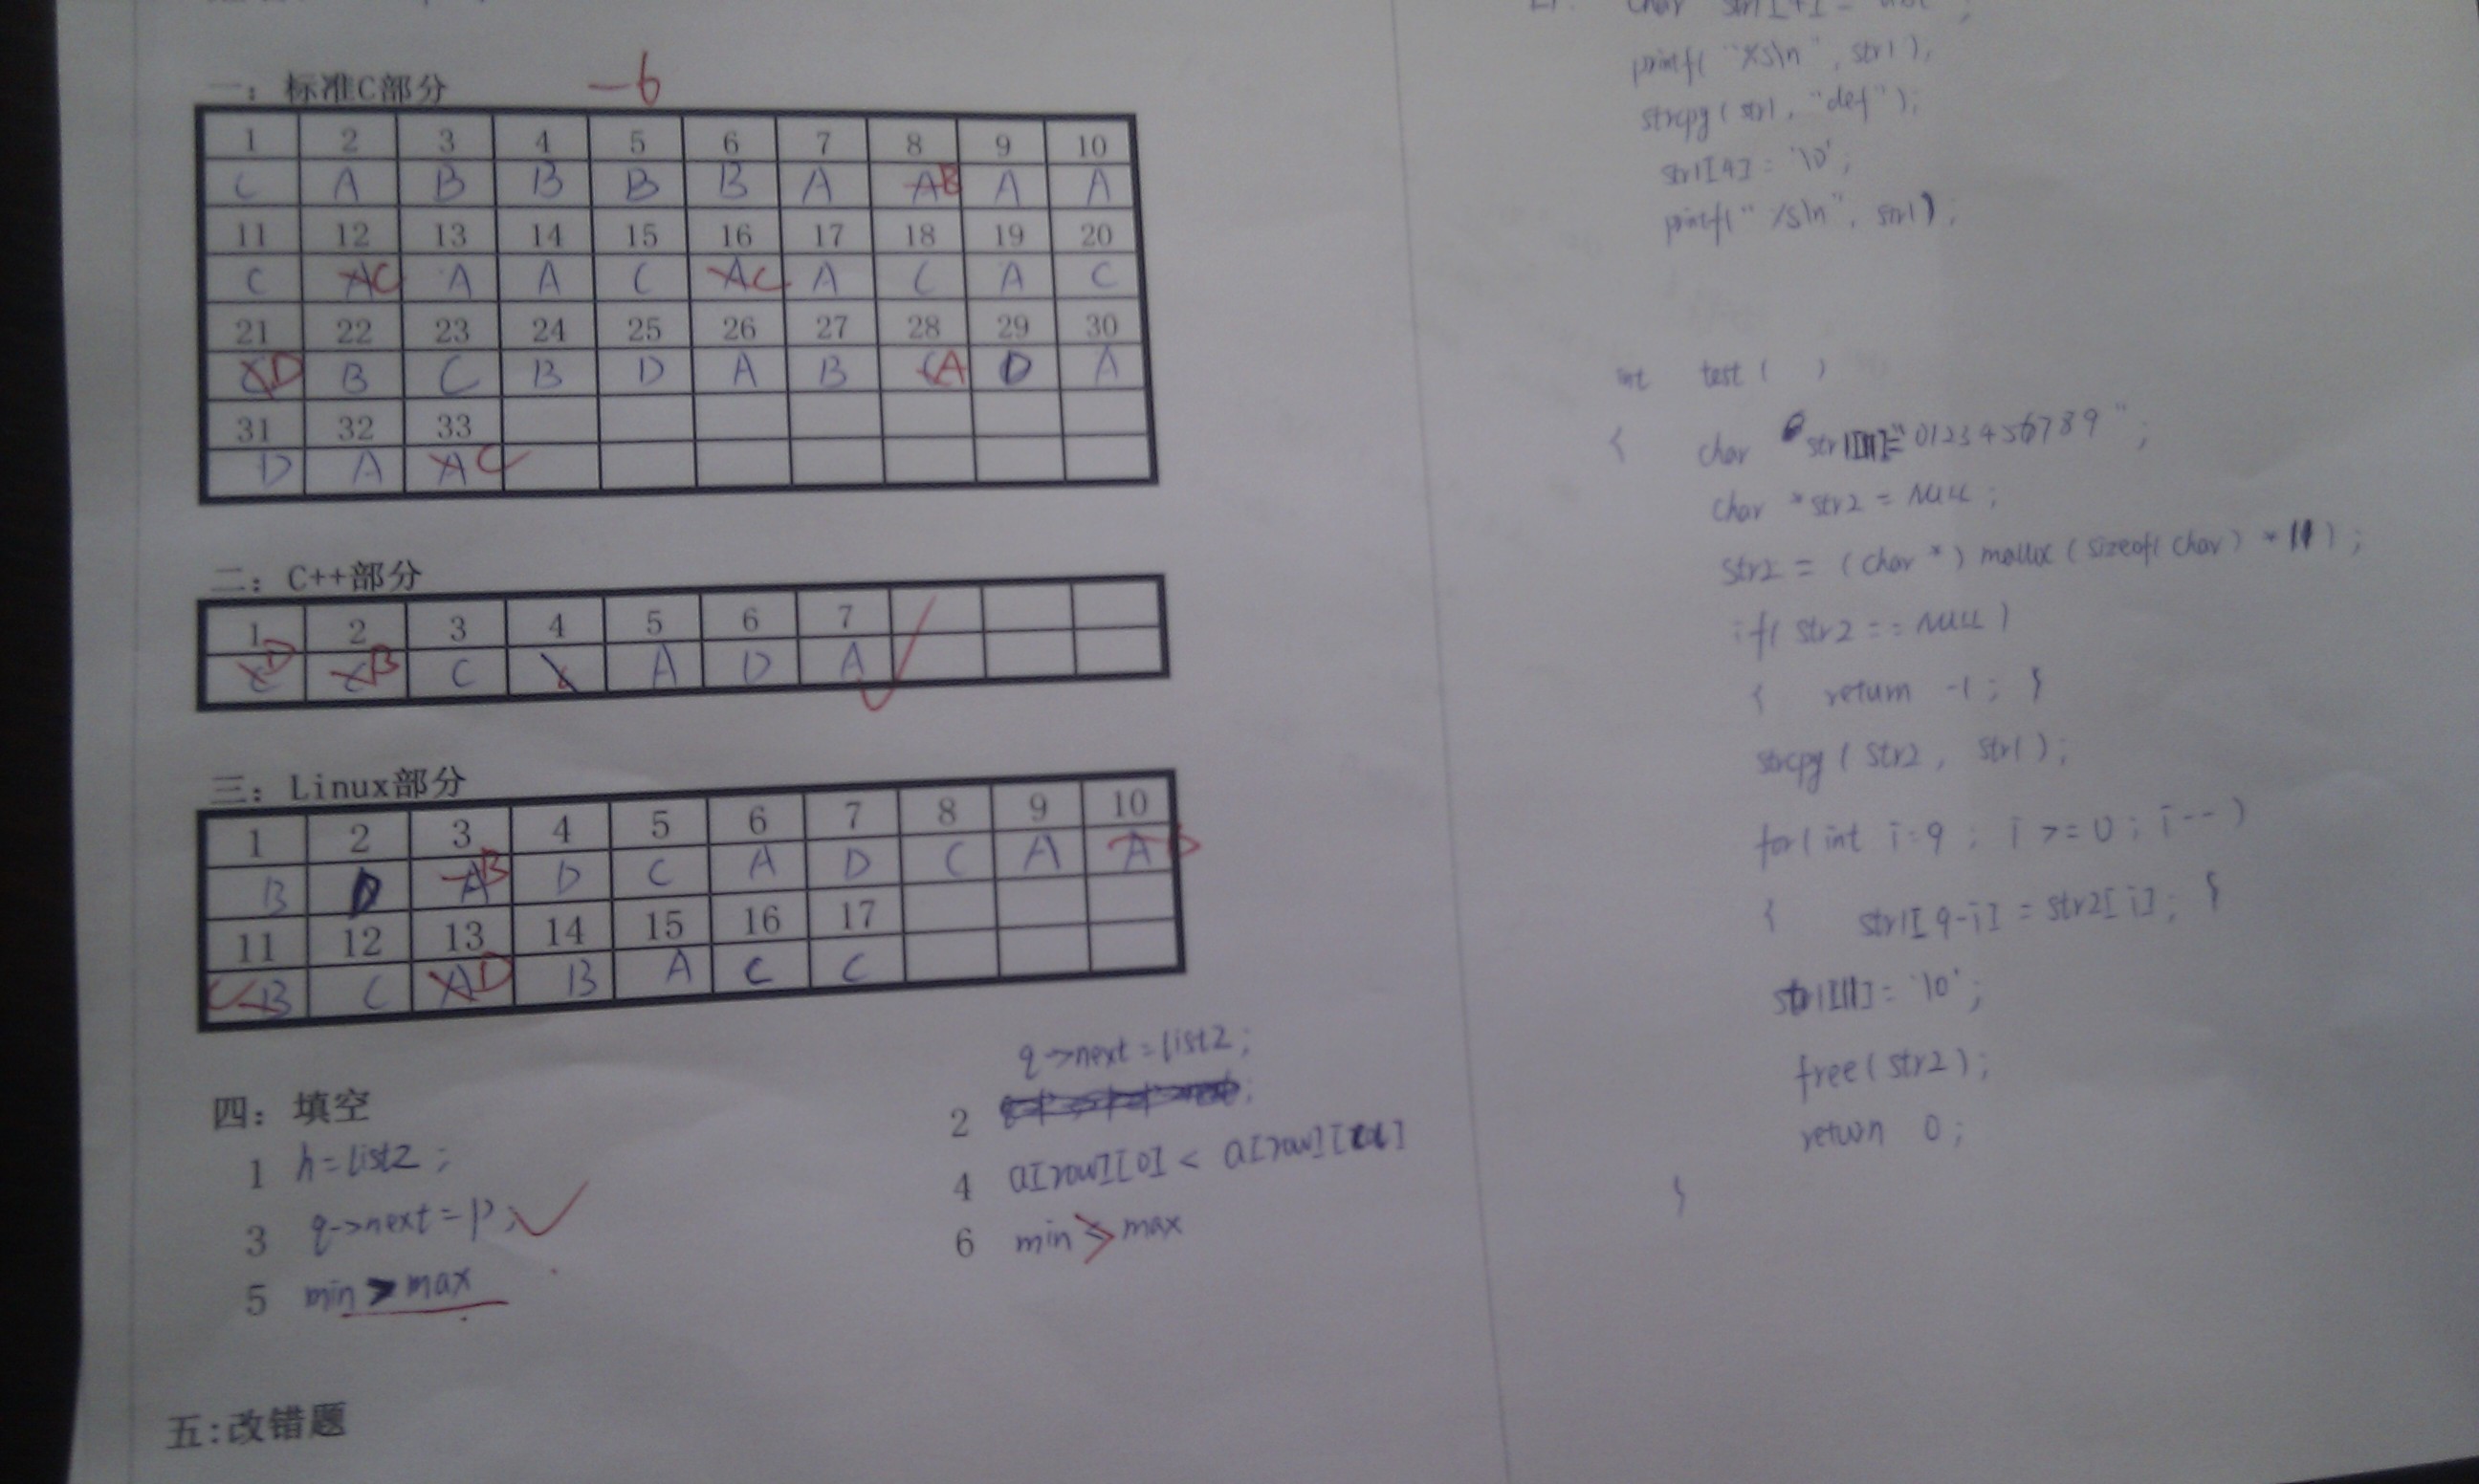 一：标准C部分 -6
1 2 3 4 5 6 7 8 9 10
C A B B B B A A B A A
11 12 13 14 15 16 17 18 19 20
C A C A A C A C A C A C
21 22 23 24 25 26 27 28 29 30
C D B C B D A B C A D A
31 32 33
D A A C
二：C++部分
1 2 3 4 5 6 7
C D C B C A D A
三：Linux部分
1 2 3 4 5 6 7 8 9 10
B D A B D C A D C A A
11 12 13 14 15 16 17
C B C A D B A C C
四：填空
1 h=list2;
2 q->next=list2;
3 q->next=p;
4 a[row][0] < a[row][col]
5 min > max
6 min > max
五:改错题
char
printf( "%s\n", str1 );
strcpy( str1, "def" );
str1[4] = '\0';
printf( "%s\n", str1 );
int test( )
{ char str1[11]="0123456789";
char *str2 = NULL;
str2 = (char *) malloc (sizeof( char ) * 11 );
if( str2 == NULL )
{ return -1; }
strcpy ( str2, str1 );
for( int i=9; i >= 0; i-- )
{ str1[9-i] = str2[i]; }
str1[11] = '\0';
free( str2 );
return 0;
}